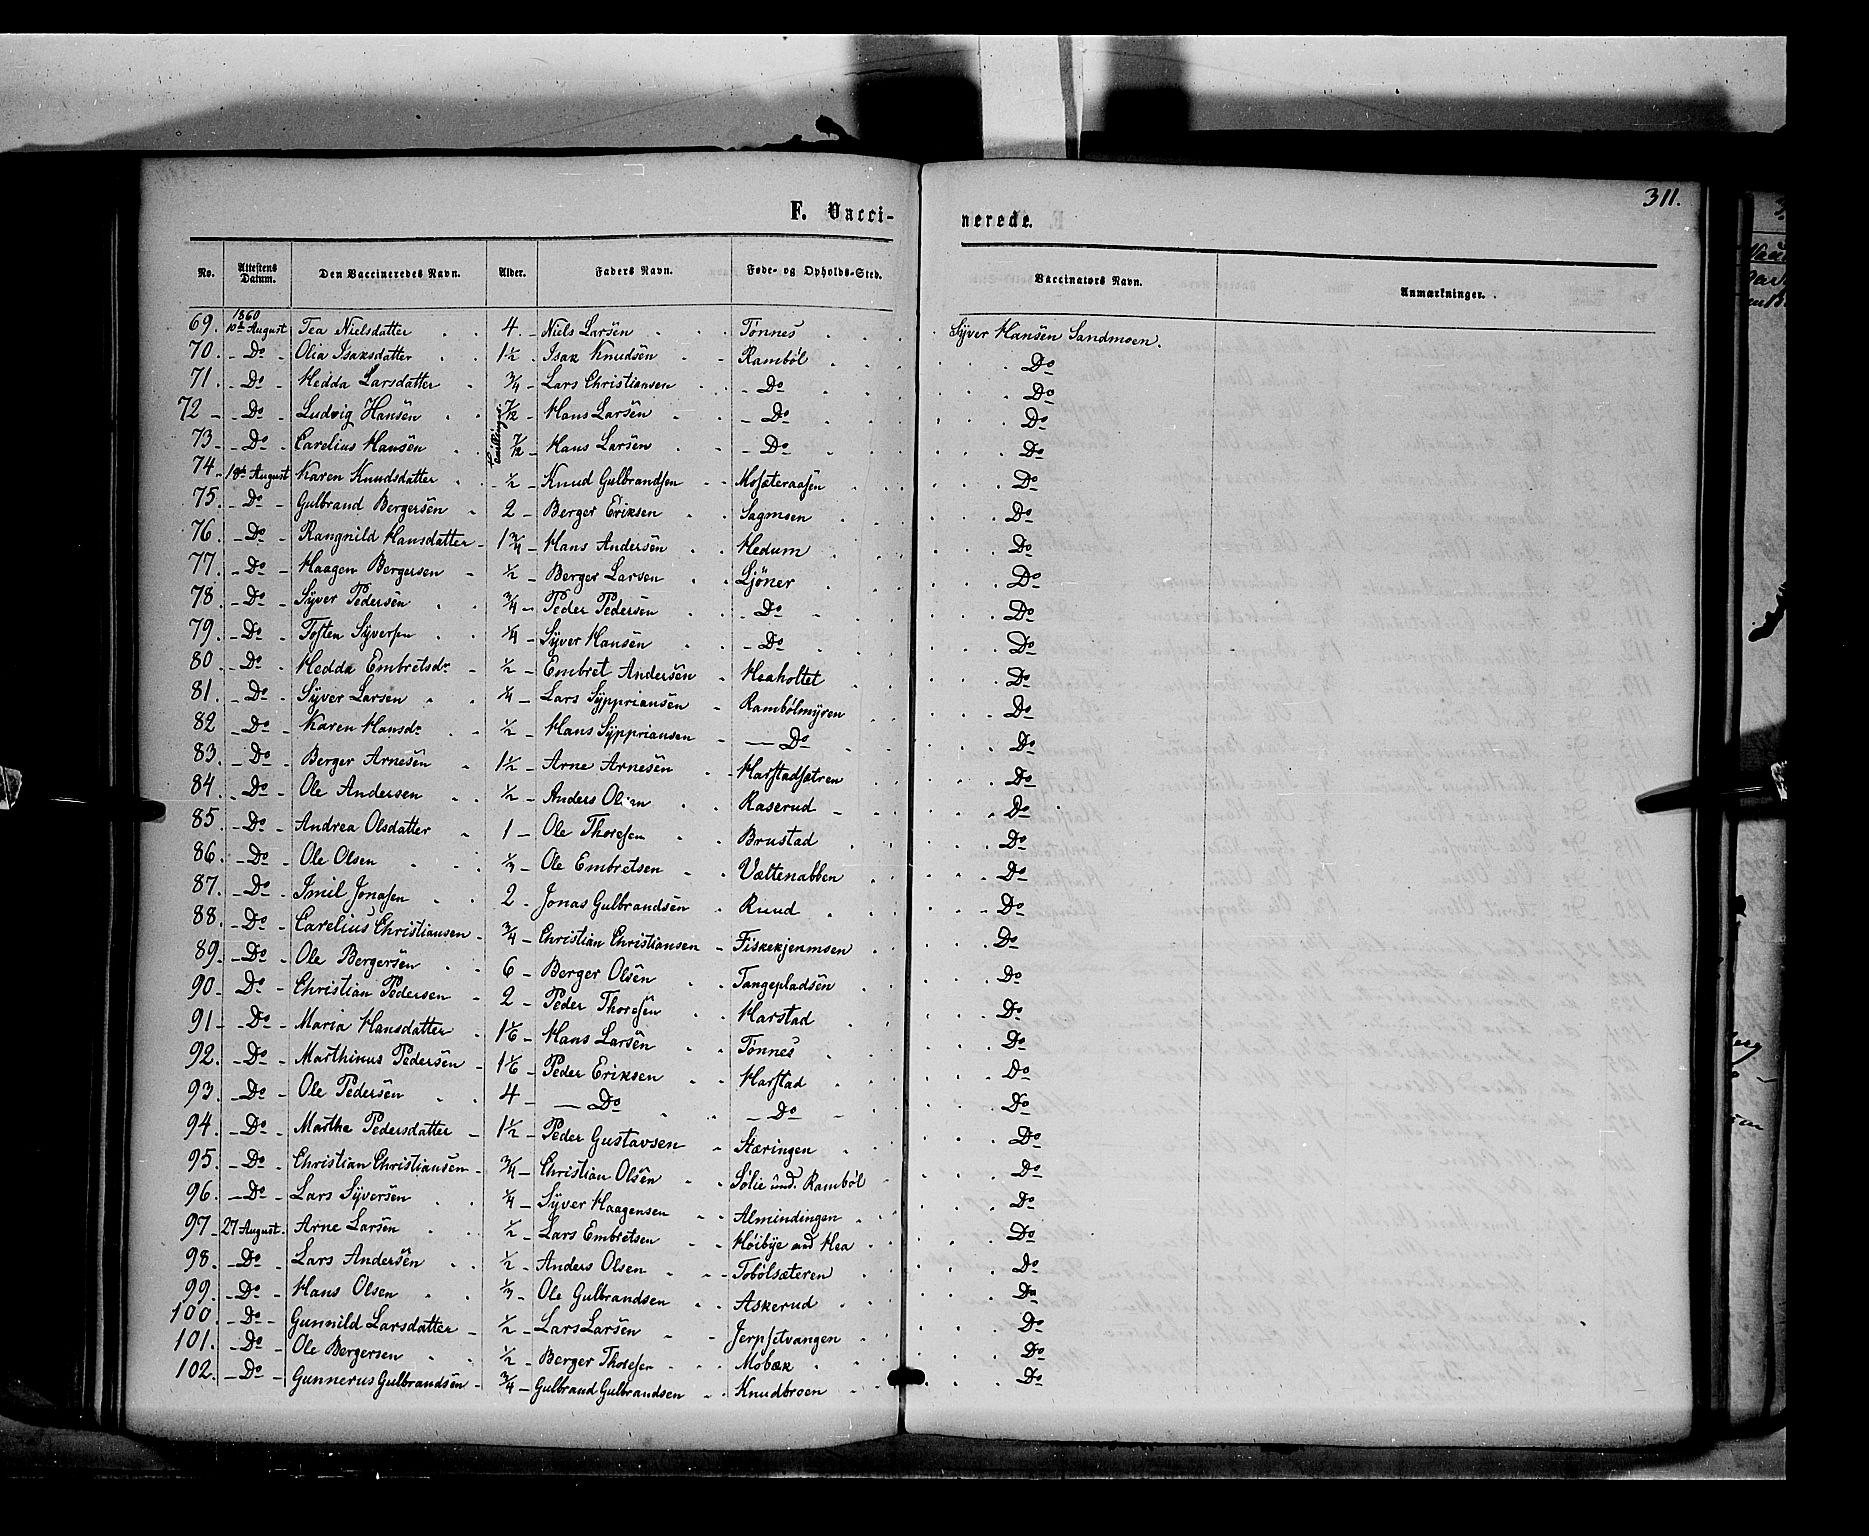 311.
F. Vacci-nerede.
No. Attestens Datum. Den Vaccineredes Navn. Alder. Faders Navn. Føde- og Opholds-Sted. Vaccinators Navn. Anmærkninger.
1860
69. 10de August Tea Nielsdatter 4 Niels Larsen Tønnes Syver Hansen Sandmoen.
70. Do Olia Isaksdatter 1½ Isak Knudsen Rambøl Do
71. Do Hedda Larsdatter ¾ Lars Christiansen Do Do
72 Do Ludvig Hansen 7/12 Hans Larsen Do Do
Tvillinger
73. Do Carelius Hansen 7/12 Hans Larsen Do Do
74. 18de August Karen Knudsdatter ½ Knud Gulbrandsen Mosæteraasen Do
75. Do Gulbrand Bergersen 2 Berger Eriksen Sagmoen Do
76. Do Rangnild Hansdatter 1¾ Hans Andersen Hedum Do
77. Do Haagen Bergersen ½ Berger Larsen Sjöner Do
78. Do Syver Pedersen ¾ Peder Pedersen Do Do
79. Do Tosten Syversen ¼ Syver Hansen Do Do
80. Do Hedda Embretsdr ½ Embret Andersen Heaholtet Do
81. Do Syver Larsen ¼ Lars Syppriansen Rambølmyren Do
82 Do Karen Hansdr ½ Hans Syppriansen Do Do
83. Do Berger Arnesen 1½ Arne Arnesen Harstadsætren Do
84. Do Ole Andersen ½ Anders Olsen Raserud Do
85. Do Andrea Olsdatter 1 Ole Thoresen Brustad Do
86. Do Ole Olsen ⅓ Ole Embretsen Væltenabben Do
87. Do Imil Jonasen 2 Jonas Gulbrandsen Ruud Do
88. Do Carelius Christiansen ¾ Christian Christiansen Fiskekjenmoen Do
89. Do Ole Bergersen 6 Berger Olsen Tangepladsen Do
90. Do Christian Pedersen 2 Peder Thoresen Harstad Do
91 Do Maria Hansdatter 1⅙ Hans Larsen Tönnes Do
92. Do Marthinus Pedersen 1⅙ Peder Eriksen Harstad Do
93. Do Ole Pedersen 4 Do Do Do
94. Do Marthe Pedersdatter 1½ Peder Gustavsen Stæringen Do
95. Do Christian Christiansen ¾ Christian Olsen Sølie und. Rambøl Do
96. Do Lars Syversen ¼ Syver Haagensen Almindingen Do
97 27 August. Arne Larsen ½ Lars Embretsen Høibye und Hea Do
98. Do Lars Andersen ½ Anders Olsen Tobølsæteren Do
99. Do Hans Olsen ⅓ Ole Gulbrandsen Askerud Do
100. Do Gunnild Larsdatter ½ Lars Larsen Jerpsetvangen Do
101. Do Ole Bergersen ½ Berger Thoresen Mobæk Do
102. Do Gunnerus Gulbrandsen ¾ Gulbrand Gulbrandsen Knudbroen Do